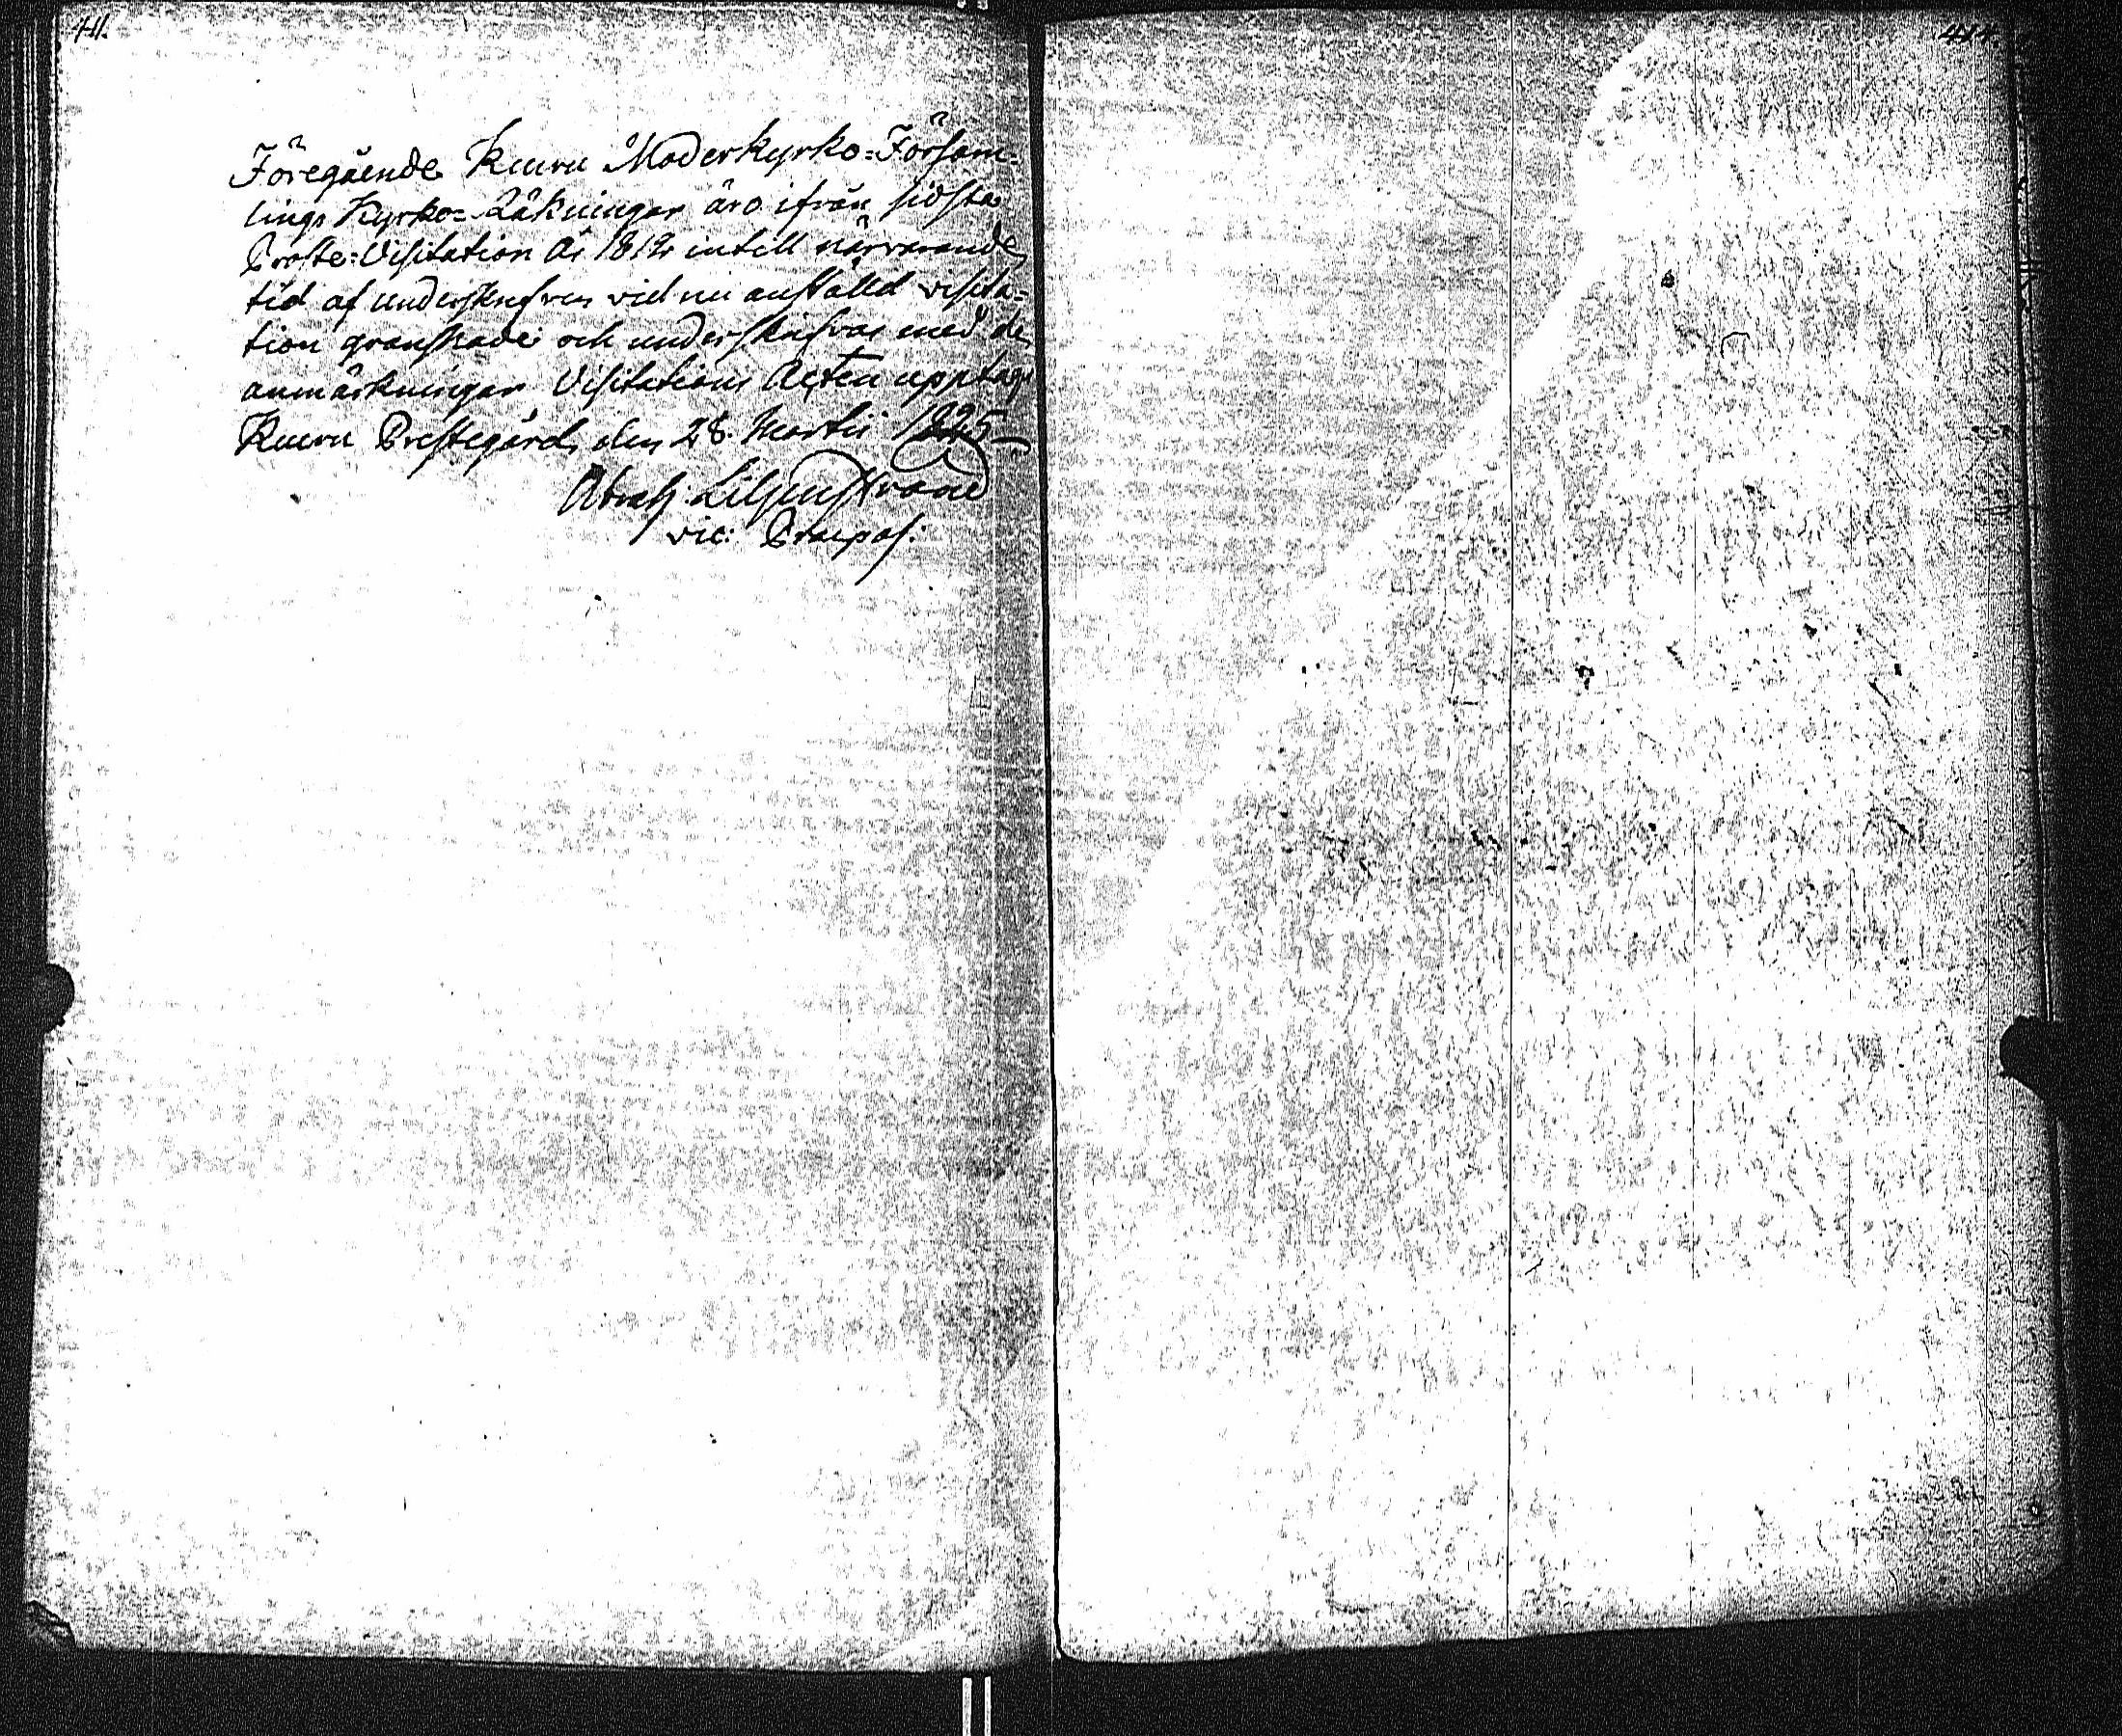 411.
Föregående Kumu Moderkyrko=Försam=
lings Kyrko=Räkningar äro ifrån sidsta
Proste=Visitation År 1812 intill närvarande
tid af underskrefven vid nu anstäld visita=
tion granskade och underskrifvas med de
anmärkningar Visitations Acten upptager
Kumu Prestegård, den 28. Martii 1825
Abrah: Liljenstrand
vic: Praepos: